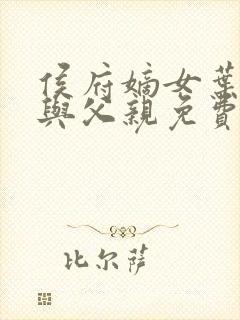 侯府嫡女葉
與父親免費
比尔萨